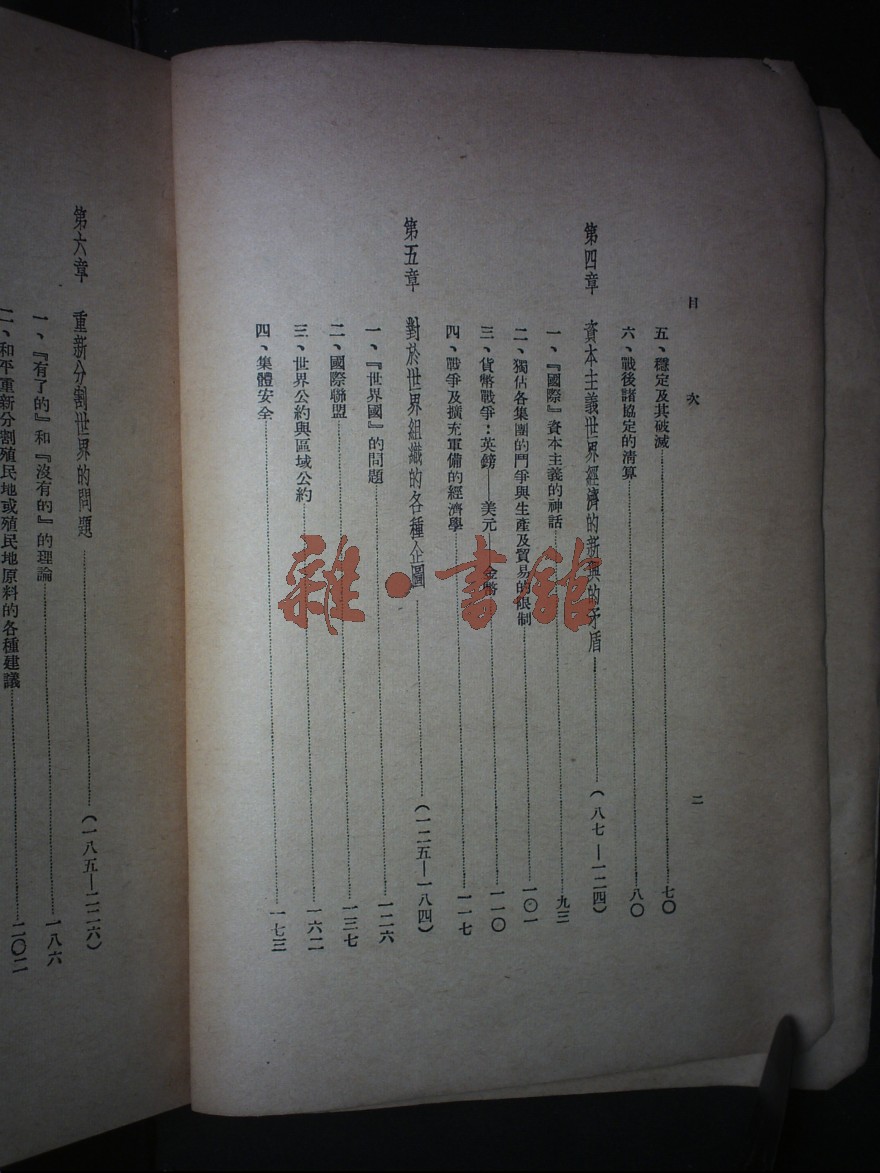 目次 二
五、穩定及其破滅 七〇
六、戰後諸協定的清算 八〇
第四章 資本主義世界經濟的新興的矛盾 (八七—一二四)
一、『國際』資本主義的神話 九三
二、獨佔各集團的鬥爭與生產及貿易的限制 一〇一
三、貨幣戰爭：英鎊——美元——金幣 一一〇
四、戰爭及擴充軍備的經濟學 一一七
第五章 對於世界組織的各種企圖 (一二五—一八四)
一、『世界國』的問題 一二六
二、國際聯盟 一三七
三、世界公約與區域公約 一六二
四、集體安全 一七三
第六章 重新分割世界的問題 (一八五—二二六)
一、『有了的』和『沒有的』的理論 一八六
二、和平重新分割殖民地或殖民地原料的各種建議 二〇二
雜·書館